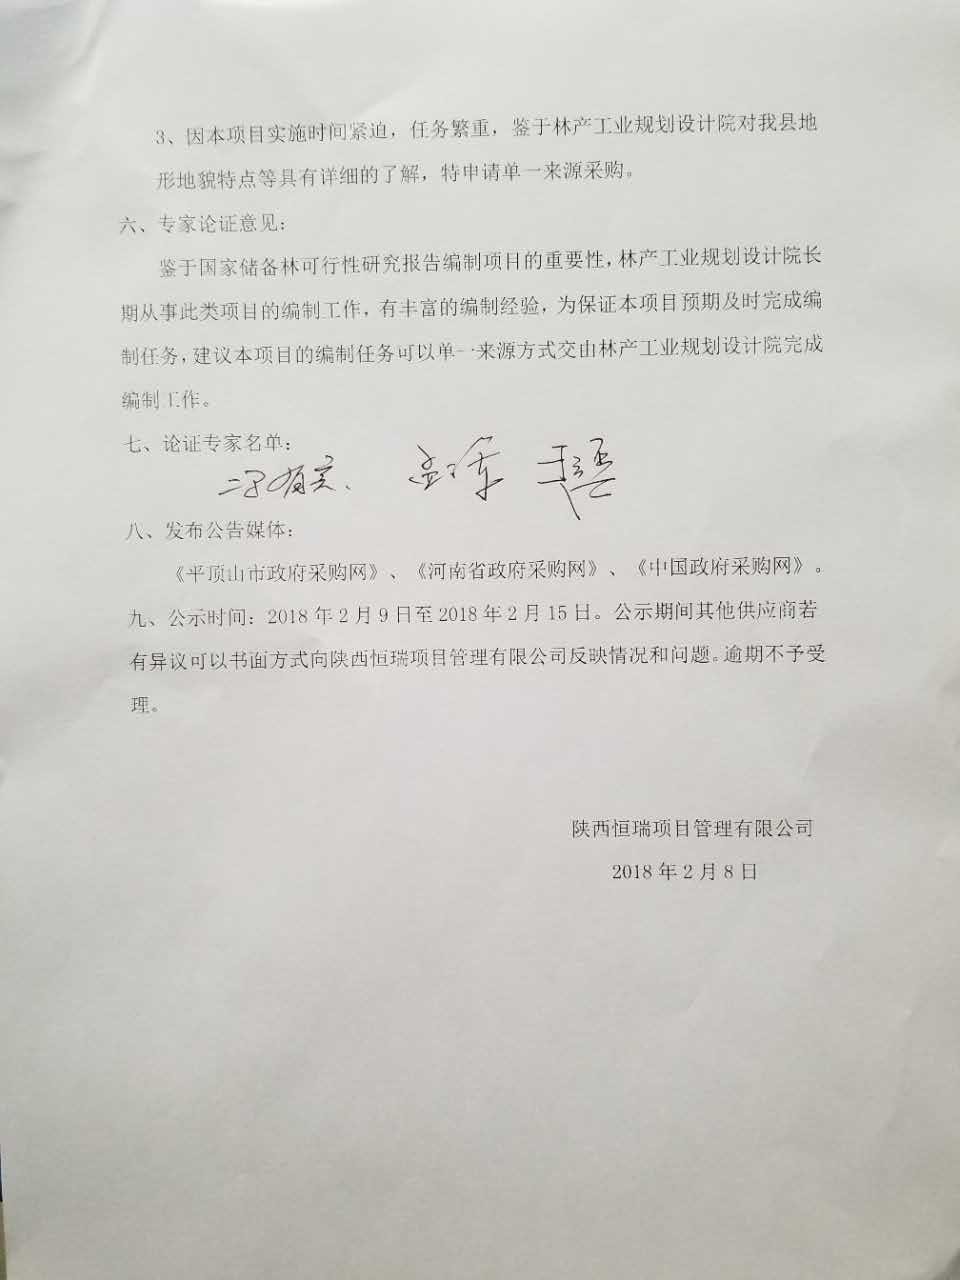 3、因本项目实施时间紧迫，任务繁重，鉴于林产工业规划设计院对我县地
形地貌特点等具有详细的了解，特申请单一来源采购。
六、专家论证意见：
鉴于国家储备林可行性研究报告编制项目的重要性，林产工业规划设计院长
期从事此类项目的编制工作，有丰富的编制经验，为保证本项目预期及时完成编
制任务，建议本项目的编制任务可以单一来源方式交由林产工业规划设计院完成
编制工作。
七、论证专家名单：
八、发布公告媒体：
《平顶山市政府采购网》、《河南省政府采购网》、《中国政府采购网》。
九、公示时间：2018 年 2 月 9 日至 2018 年 2 月 15 日。公示期间其他供应商若
有异议可以书面方式向陕西恒瑞项目管理有限公司反映情况和问题。逾期不予受
理。
陕西恒瑞项目管理有限公司
2018 年 2 月 8 日